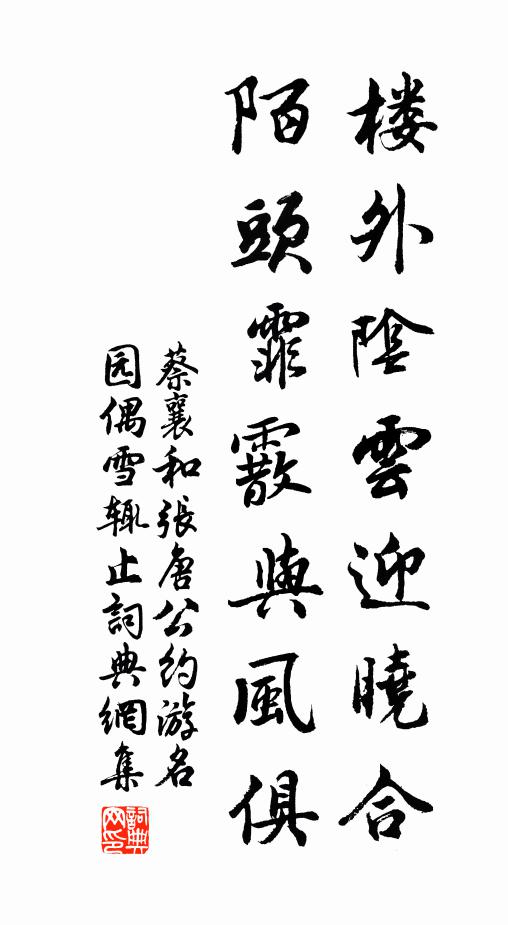 楼外陰雲迎曉合
陌頭霏霰與風俱
蔡襄和張唐公約游名
园偶雪辄止詞典網集
詞典
网印